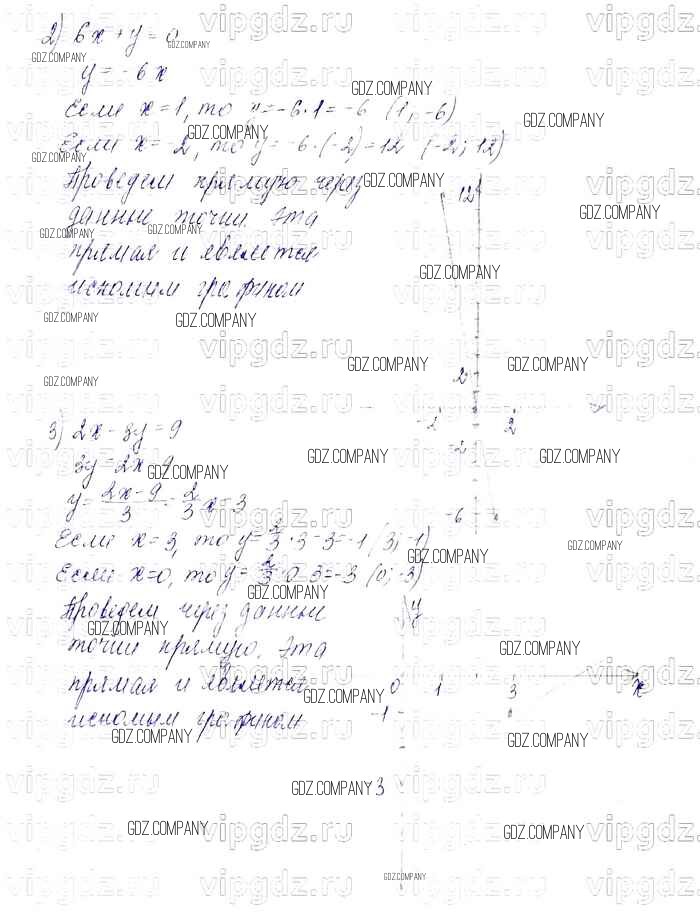 2) 6x + y = 0
y = -6x
Если x = 1, то y = -6·1 = -6 (1; -6)
Если x = -2, то y = -6·(-2) = 12 (-2; 12)
Проведем прямую через
данные точки. Эта
прямая и является
искомым графиком
12
2
-2
2
-2
-6
3) 2x - 3y = 9
3y = 2x - 9
y = (2x - 9)/3 = 2/3 x - 3
Если x = 3, то y = 2/3 · 3 - 3 = -1 (3; -1)
Если x = 0, то y = 2/3 · 0 - 3 = -3 (0; -3)
Проведем через данные
точки прямую. Эта
прямая и является
искомым графиком
y
0 1 3 x
-1
3
GDZ.COMPANY
vipgdz.ru